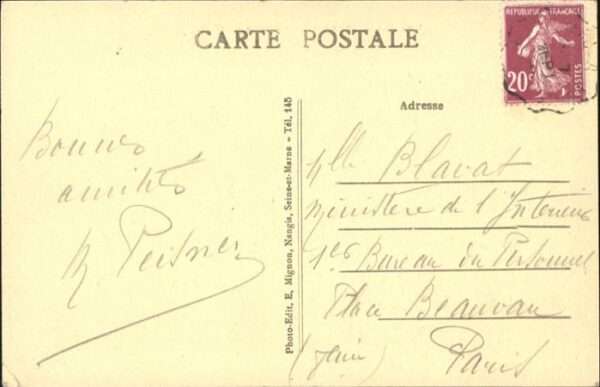 CARTE POSTALE
REPUBLIQUE FRANÇAISE
20c
POSTES
Adresse
Bonnes
amitiés
Photo-Edit. E. Mignon, Nangis, Seine-et-Marne - Tél. 145
Mlle Blavat
Ministère de l'Intérieur
1er Bureau du Personnel
Place Beauvau
Paris